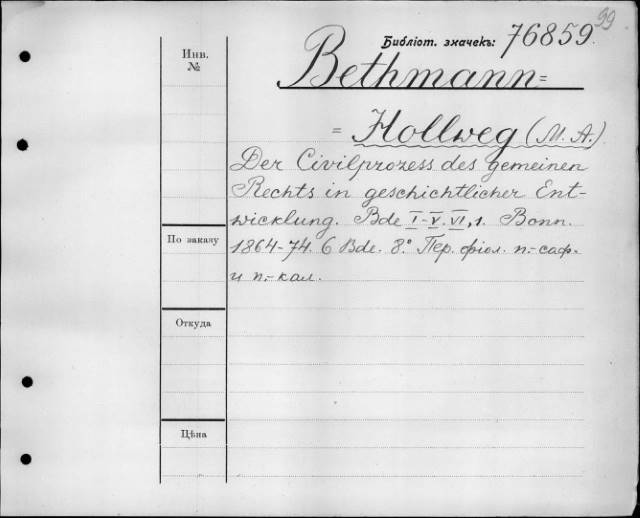 99
Библіот. значекъ: 76859.
Инв.
№
Bethmann=
= Hollweg (M. A.)
Der Civilprozess des gemeinen
Rechts in geschichtlicher Ent-
wicklung. Bde I-V. VI, 1. Bonn.
1864-74. 6 Bde. 8.° Пер. фіол. п.-саф.
и п.-кал.
По заказу
Откуда
Цѣна